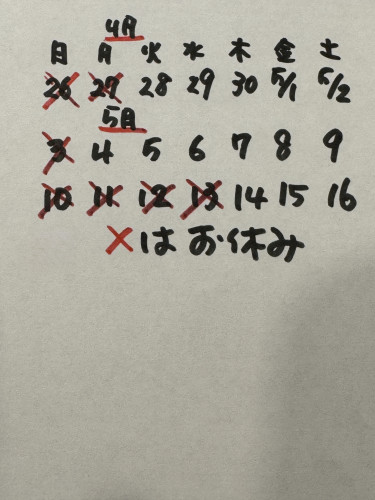 4月
日 月 火 水 木 金 土
26 27 28 29 30 5/1 5/2
5月
3 4 5 6 7 8 9
10 11 12 13 14 15 16
×はお休み